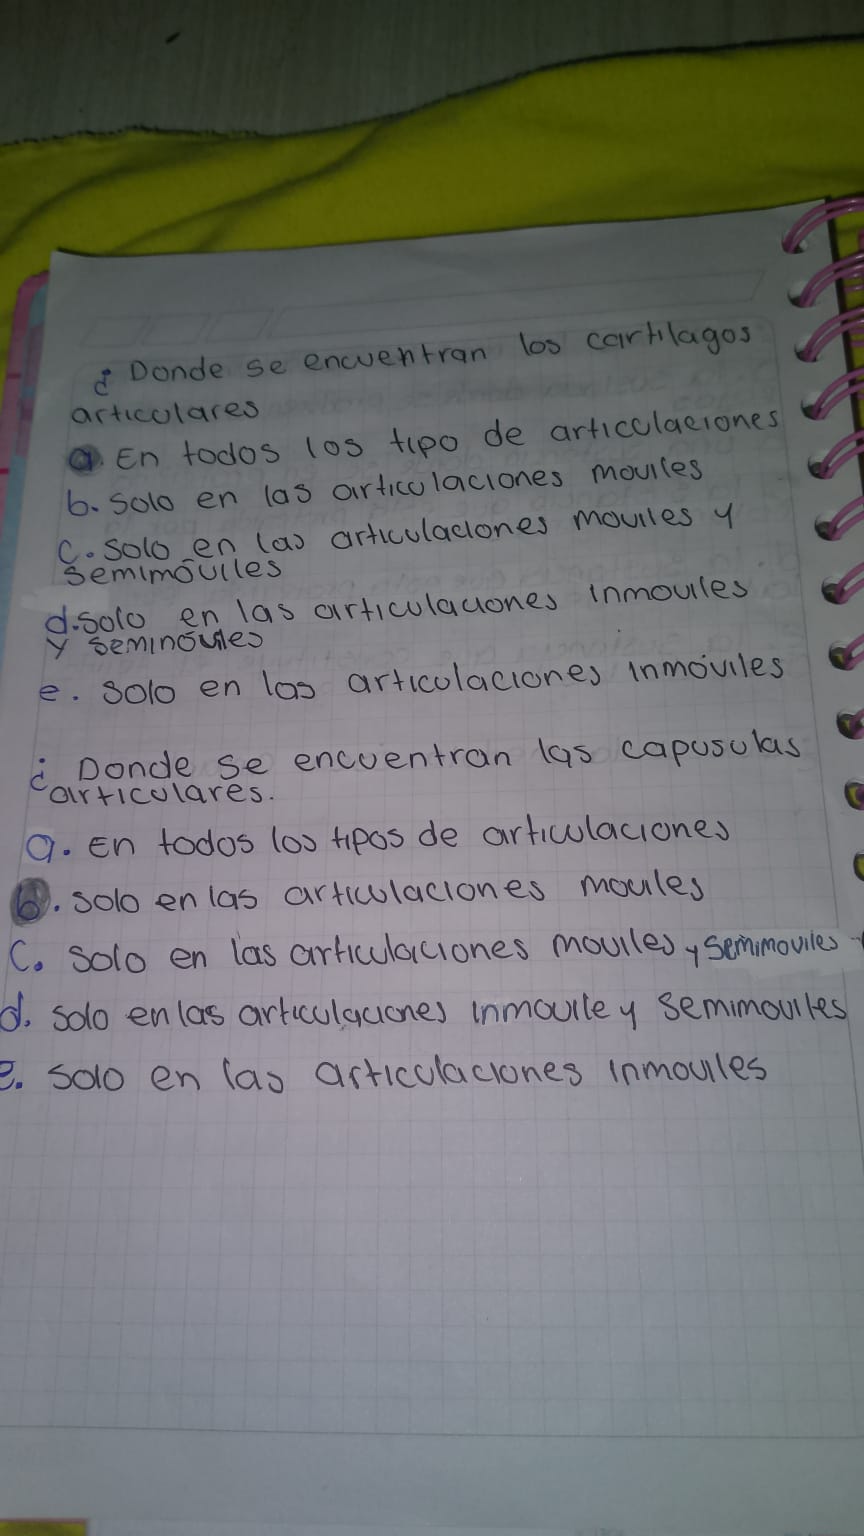 ¿Donde se encuentran los cartilagos
articulares
a. En todos los tipo de articulaciones
b. solo en las articulaciones moviles
c. solo en las articulaciones moviles y
semimoviles
d. solo en las articulaciones inmoviles
y seminoviles
e. solo en las articulaciones inmóviles
¿Donde se encuentran las capusulas
articulares.
a. En todos los tipos de articulaciones
b. solo en las articulaciones moviles
c. solo en las articulaciones moviles y semimoviles
d. solo en las articulaciones inmovile y semimoviles
e. solo en las articulaciones inmoviles